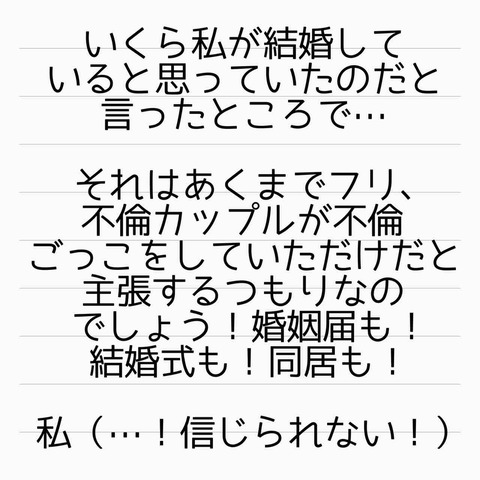 いくら私が結婚して
いると思っていたのだと
言ったところで…
それはあくまでフリ、
不倫カップルが不倫
ごっこをしていただけだと
主張するつもりなの
でしょう！婚姻届も！
結婚式も！同居も！
私（…！信じられない！）